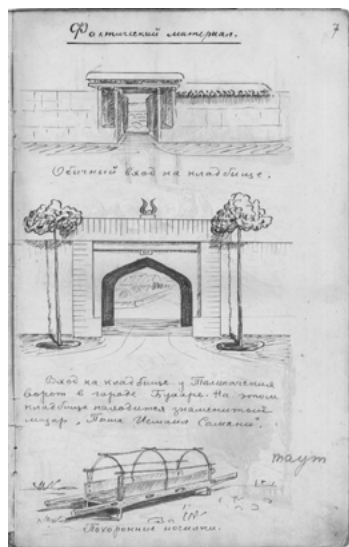 7
Фактический материал.
Обычный вход на кладбище.
Вход на кладбище у Талипачских
ворот в городе Бухаре. На этом
кладбище находится знаменитый
мазар „Паша Исмаил Самани".
таут
Похоронные носилки.